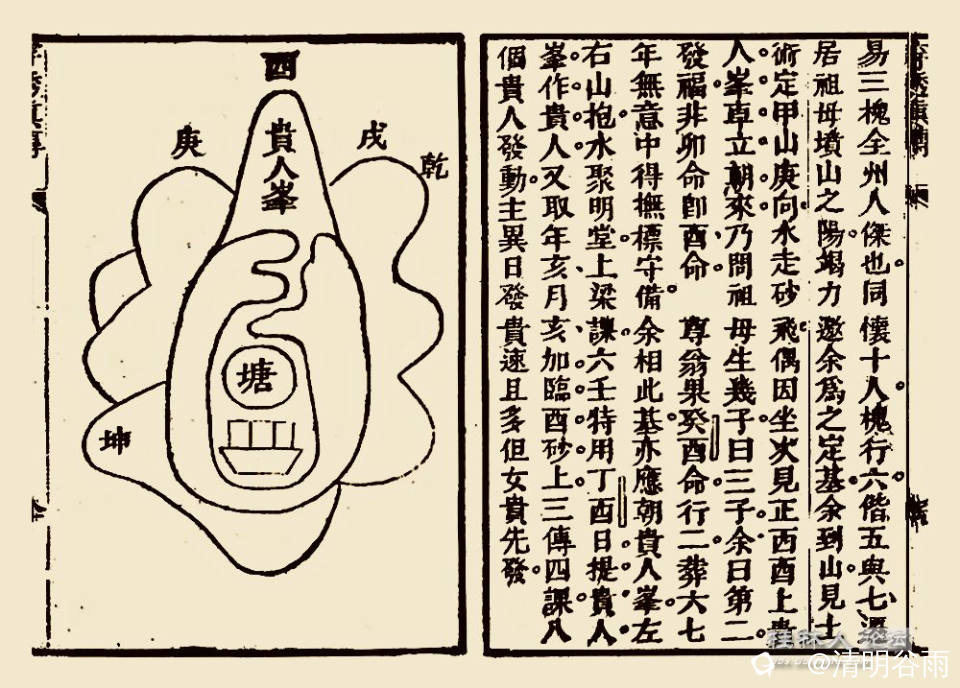 易三槐全州人傑也同懷十人槐行六偕五與七
居祖母墳山之陽竭力邀余爲之定基余到山見士
術定甲山庚向水走砂飛偶因坐次見正西酉上貴
人峯卓立朝來乃問祖母生幾子曰三子余曰第二
發福非卯命卽酉命尊翁果癸酉命行二葬六七
年無意中得撫標守備余相此基亦應朝貴人峯左
右山抱水聚明堂上梁課六壬特用丁酉日提貴人
峯作貴人又取年亥月亥加臨酉砂上三傳四課八
個貴人發動主異日發貴速且多但女貴先發
西
貴人峯
庚
戌
乾
塘
坤
桂林人论坛
@清明谷雨